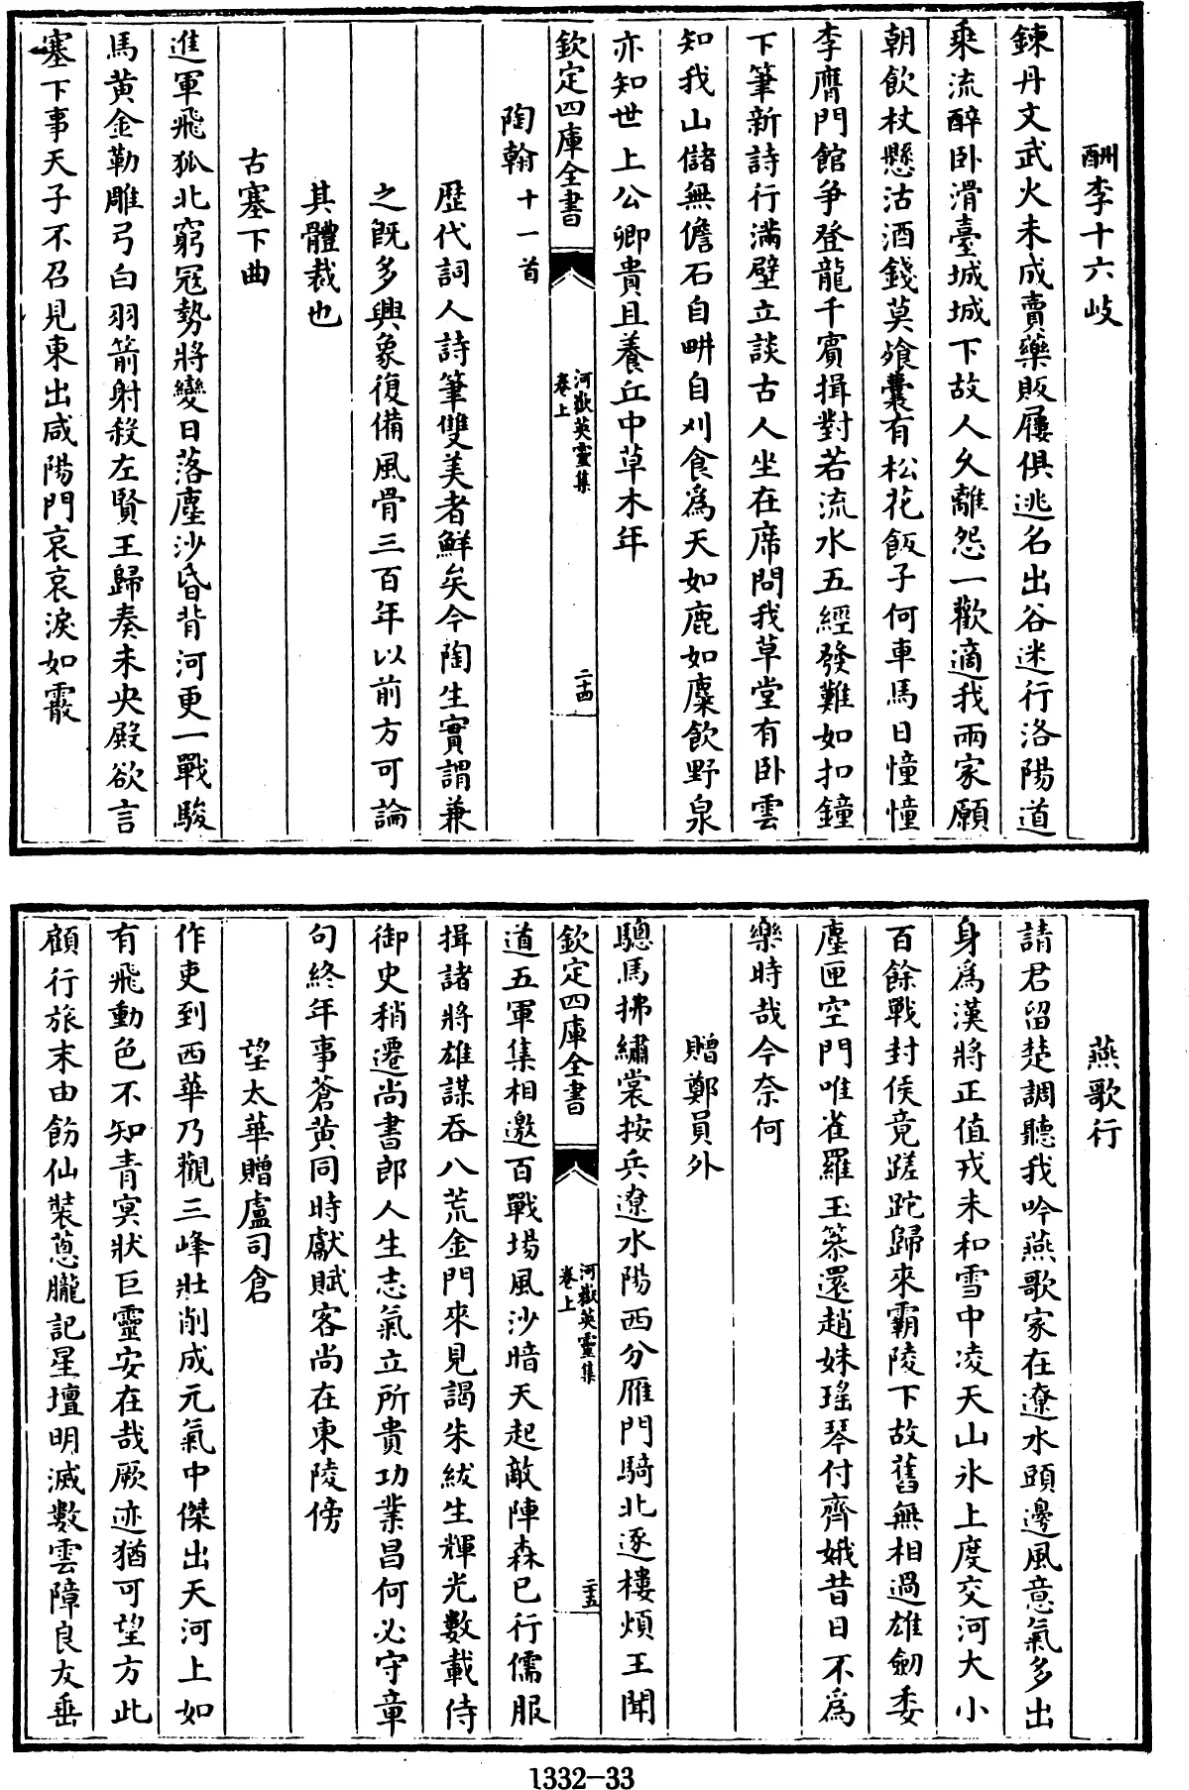 酬李十六岐
鍊丹文武火未成賣藥販屨俱逃名出谷迷行洛陽道
乘流醉卧滑臺城城下故人久離怨一歡適我兩家願
朝飲杖懸沽酒錢莫飡囊有松花飯子何車馬日憧憧
李膺門館爭登龍千賓揖對若流水五經發難如扣鐘
下筆新詩行滿壁立談古人坐在席問我草堂有卧雲
知我山儲無儋石自畊自刈食為天如鹿如麋飲野泉
亦知世上公卿貴且養丘中草木年
欽定四庫全書
河嶽英靈集
卷上
二十四
陶翰十一首
歷代詞人詩筆雙美者鮮矣今陶生實謂兼
之既多興象復備風骨三百年以前方可論
其體裁也
古塞下曲
進軍飛狐北窮冦勢將變日落塵沙昏背河更一戰駿
馬黃金勒雕弓白羽箭射殺左賢王歸奏未央殿欲言
塞下事天子不召見東出咸陽門哀哀淚如霰
燕歌行
請君留楚調聽我吟燕歌家在遼水頭邊風意氣多出
身為漢將正值戎未和雪中凌天山氷上度交河大小
百餘戰封侯竟蹉跎歸來霸陵下故舊無相過雄劒委
塵匣空門唯雀羅玉篸還趙姝瑤琴付齊娥昔日不為
樂時哉今奈何
贈鄭員外
驄馬拂繡裳按兵遼水陽西分雁門騎北逐樓煩王聞
欽定四庫全書
河嶽英靈集
卷上
二十五
道五軍集相邀百戰場風沙暗天起敵陣森已行儒服
揖諸將雄謀吞八荒金門來見謁朱紱生輝光數載侍
御史稍遷尚書郎人生志氣立所貴功業昌何必守章
句終年事蒼黃同時獻賦客尚在東陵傍
望太華贈盧司倉
作吏到西華乃觀三峰壯削成元氣中傑出天河上如
有飛動色不知青冥狀巨靈安在哉厥迹猶可望方此
顧行旅末由飭仙裝蔥朧記星壇明滅數雲障良友垂
1332-33